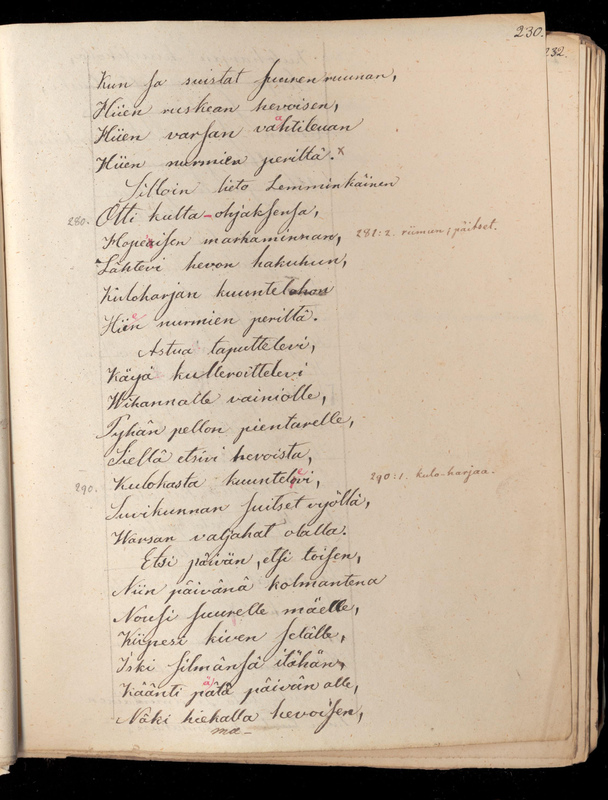 230.
232.
Kun sa suistat suuren ruunan,
Hiien ruskean hevoisen,
Hiien varsan vahtileuan
Hiien nurmien perittä. x
Silloin lieto Lemminkäinen
280. Otti kulta-ohjaksensa,
Hopeisen marhaminnan, 281:2. riimun; päitset.
Lähtevi hevon hakuhun,
Kuloharjan kuuntelohon
Hiien nurmien perittä.
Astua taputtelevi,
Käyä kulleroittelevi
Wihannalle vainiolle,
Pyhän pellon pientarelle,
Sieltä etsivi hevoista,
290. Kulokasta kuuntelevi, 290:1. kulo-harjaa.
Suvikunnan suitset vyöllä,
Warsan valjahat olalla.
Etsi päivän, etsi toisen,
Niin päivänä kolmantena
Nousi suurelle mäelle,
Kiipesi kiven selälle,
Iski silmänsä itähän,
Käänti päätä päivän alle,
Näki hiekalla hevoisen,
ma-